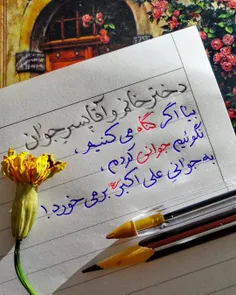 دختر خانم و آقا پسر جوان
بیا اگر گناه می کنیم،
نگوئیم جوانی کردم،
به جوانیِ علی اکبر برمی خورد!